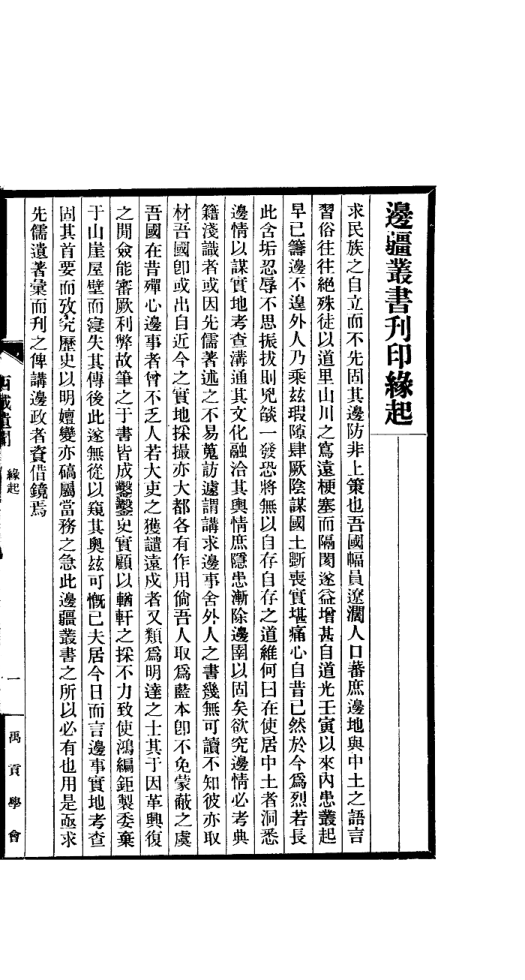 邊疆叢書刋印緣起
求民族之自立而不先固其邊防非上策也吾國幅員遼濶人口蕃庶邊地與中土之語言
習俗往往絕殊徒以道里山川之寫遠梗塞而隔閡遂益增甚自道光壬寅以來內患叢起
早已籌邊不遑外人乃乘玆瑕隙肆厥陰謀國土斲喪實堪痛心自昔已然於今爲烈若長
此含垢忍辱不思振拔則兇燄一發恐將無以自存自存之道維何曰在使居中土者洞悉
邊情以謀實地考查溝通其文化融洽其輿情庶隱患漸除邊圉以固矣欲究邊情必考典
籍淺識者或因先儒著述之不易蒐訪遽謂講求邊事舍外人之書幾無可讀不知彼亦取
材吾國卽或出自近今之實地採撮亦大都各有作用倘吾人取爲藍本卽不免蒙蔽之虞
吾國在昔殫心邊事者曾不乏人若大吏之獲譴遠戍者又類爲明達之士其于因革興復
之閒僉能審厥利弊故筆之于書皆成鑿鑿史實顧以輶軒之採不力致使鴻編鉅製委棄
于山崖屋壁而寖失其傳後此遂無從以窺其奧玆可慨已夫居今日而言邊事實地考查
固其首要而攷究歷史以明嬗變亦碻屬當務之急此邊疆叢書之所以必有也用是亟求
先儒遺著彙而刋之俾講邊政者資借鏡焉
緣起
一
禹貢學會